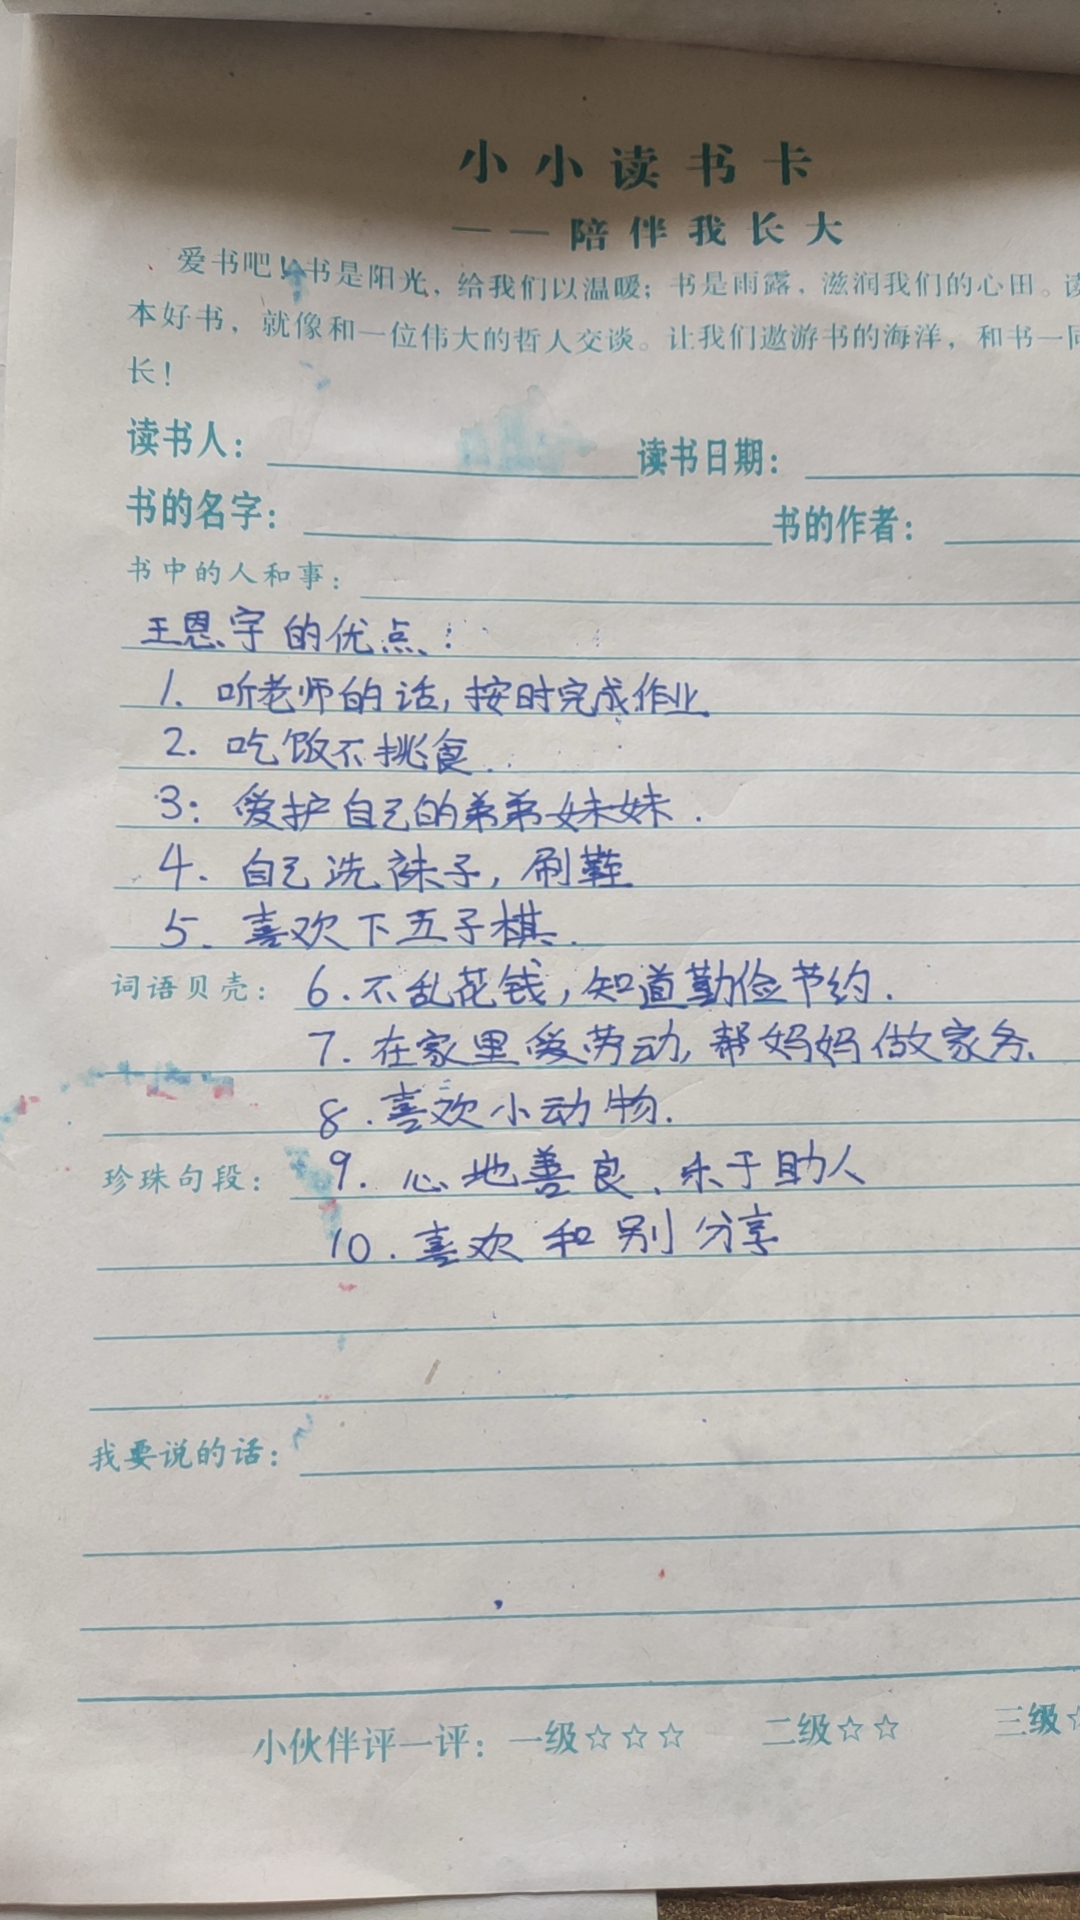 小小读书卡
——陪伴我长大
爱书吧！书是阳光，给我们以温暖；书是雨露，滋润我们的心田。读
本好书，就像和一位伟大的哲人交谈。让我们遨游书的海洋，和书一同
长！
读书人： 读书日期：
书的名字： 书的作者：
书中的人和事：
王恩宇的优点：
1. 听老师的话，按时完成作业
2. 吃饭不挑食.
3: 爱护自己的弟弟妹妹.
4. 自己洗袜子，刷鞋
5. 喜欢下五子棋.
词语贝壳： 6. 不乱花钱，知道勤俭节约.
7. 在家里爱劳动，帮妈妈做家务.
8. 喜欢小动物.
珍珠句段： 9. 心地善良、乐于助人
10. 喜欢和别分享
我要说的话：
小伙伴评一评：一级☆☆☆ 二级☆☆ 三级☆